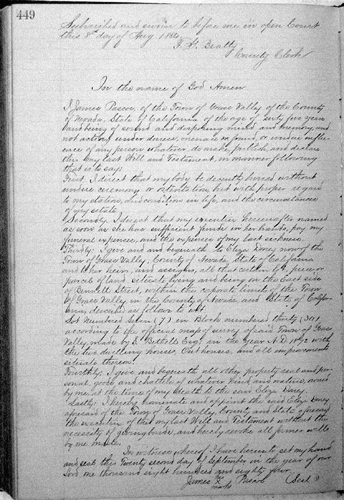 449
Subscribed and sworn to before me in open Court
this 8th day of Aug 1884
Beatty
County Clerk
In the name of God Amen
I James Pascoe, of the Town of Grass Valley of the County
of Nevada, State of California of the age of sixty five years
and being of sound and disposing mind and memory, and
not acting under duress, menace, fraud, or undue influ
ence of any person whatever do make, publish and declare
this my last Will and Testament, in manner following
that is to say:
First, I direct that my body be decently buried without
undue ceremony or ostentation but with proper regard
to my station, and condition in life, and the circumstances
of my estate.
Secondly, I direct that my executrix hereinafter named
as soon as she has sufficient funds in her hands, pay my
funeral expenses, and the expenses of my last sickness.
Thirdly, I give and bequeath to Eliza of the
Town of Grass Valley, County of Nevada, State of California
and to her heirs, and assigns, all that certain lot, piece or
parcel of land, situate, lying and being on the East side
of Street, within the corporate limits of the Town
of Grass Valley in the County of Nevada, and State of Califor
nia, described as follows to wit:
Lot Numbered in Block numbered thirty (30)
according to the official map of survey of said Town of Grass
Valley, made by S. Bethell Esq. in the year A.D. 1872 with
the two dwelling houses, Out houses, and all improvements
situate thereon.
Fourthly, I give and bequeath all other property real and per
sonal, goods and chattels of whatever kind and nature, owned
by me at the time of my death to the said Eliza
Lastly, I hereby nominate and appoint the said Eliza
aforesaid of the Town of Grass Valley, County and State aforesaid
the executrix of this my last Will and Testament without the
necessity of giving bonds, and hereby revoke all former wills
by me made.
In witness whereof I have hereunto set my hand
and seal this Twenty second day of September in the year of our
Lord one thousand eight hundred and eighty four
James Pascoe Seal
mark